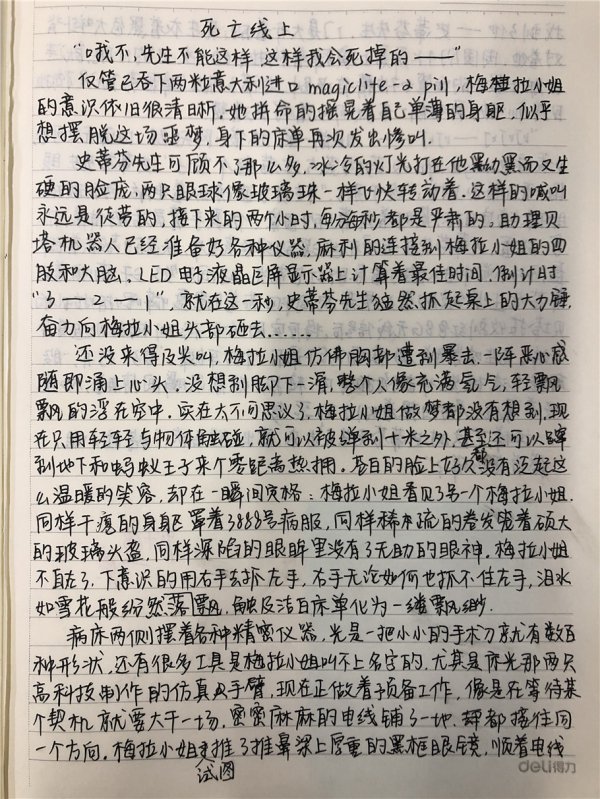 死亡线上
“哦不,先生不能这样 这样我会死掉的——”
仅管已吞下两粒意大利进口magiclife-a pill,梅拉小姐
的意识依旧很清晰。她拼命的摇晃着自己单薄的身躯,似乎
想摆脱这场噩梦,身下的床单再次发出惨叫。
史蒂芬先生可顾不了那么多,冰冷的灯光打在他黑黝黑而又生
硬的脸庞,两只眼球像玻璃珠一样飞快转动着。这样的喊叫
永远是徒劳的,接下来的两个小时,每分每秒都是严肃的。助理贝
塔机器人已经准备好各种仪器,麻利的连接到梅拉小姐的四
肢和大脑。LED电子液晶巨屏显示器上计算着最佳时间,倒计时
“3——2——1”,就在这一秒,史蒂芬先生猛然抓起桌上的大力锤
奋力向梅拉小姐头部砸去......
还没来得及尖叫,梅拉小姐仿佛胸部遭到暴击,一阵恶心感
随即涌上心头,没想到脚下一滑,整个人像充满氢气,轻飘
飘的浮在空中,实在太不可思议了,梅拉小姐做梦都没有想到,现
在只用轻轻与物体触碰,就可以被弹到十米之外,甚至还可以蹲
到地下和蚂蚁王子来个零距离热拥。苍白的脸上好久都没有泛起这
么温暖的笑容,却在一瞬间定格:梅拉小姐看见了另一个梅拉小姐.
同样干瘪的身躯 罩着3888号病服,同样稀疏的卷发笼着硕大
的玻璃头盔,同样深陷的眼眸里没有了无助的眼神。梅拉小姐
不自在了,下意识的用右手去抓左手,右手无论如何也抓不住左手,泪水
如雪花般纷然落飘,触及洁白床单化为一缕飘渺.
病床两侧摆着各种精密仪器,光是一把小小的手术刀就有数百
种形状,还有很多工具是梅拉小姐叫不上名字的,尤其是亦光那两只
高科技制作的仿真手臂,现在正做着预备工作,像是在等待某
个契机就要大干一场,密密麻麻的电线铺了一地,却都接往同
一个方向。梅拉小姐试图推了推鼻梁上厚重的黑框眼镜,顺着电线
deli得力